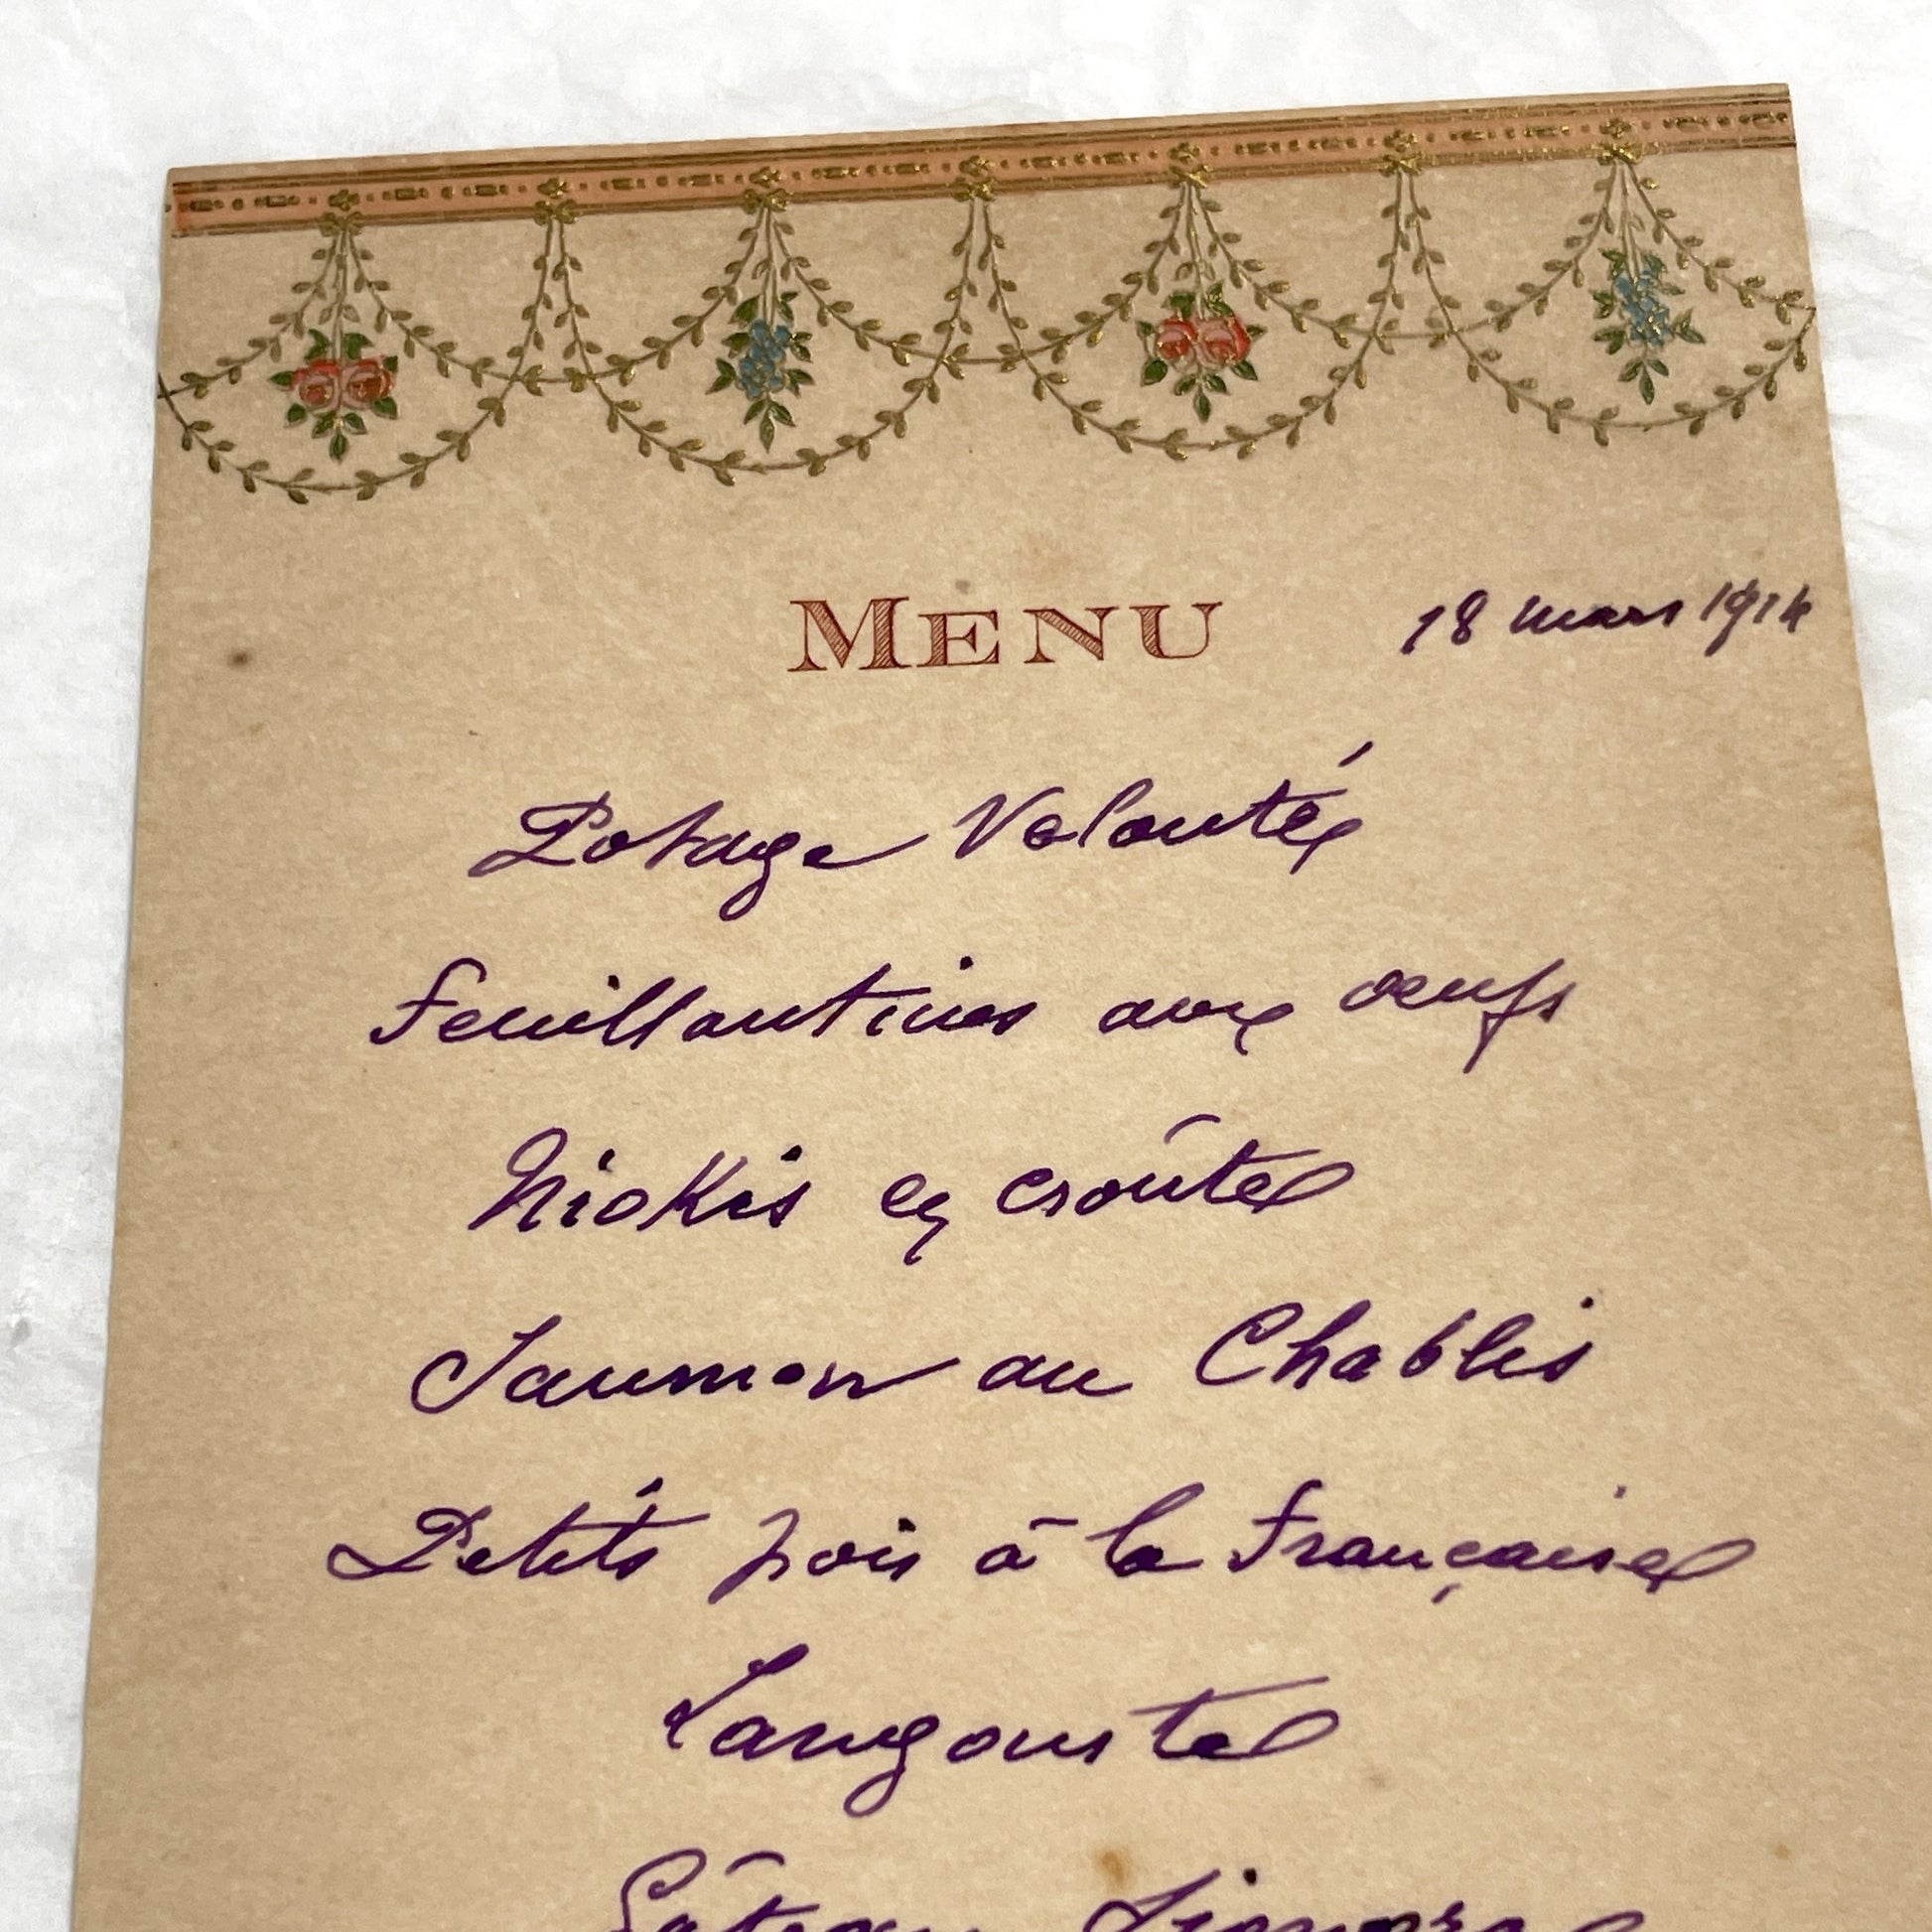 MENU 18 mars 1914
Potage Velouté
Feuillantines aux oeufs
Niokis en croûte
Saumon au Chablis
Petits pois à la Française
Langouste
Gâteau